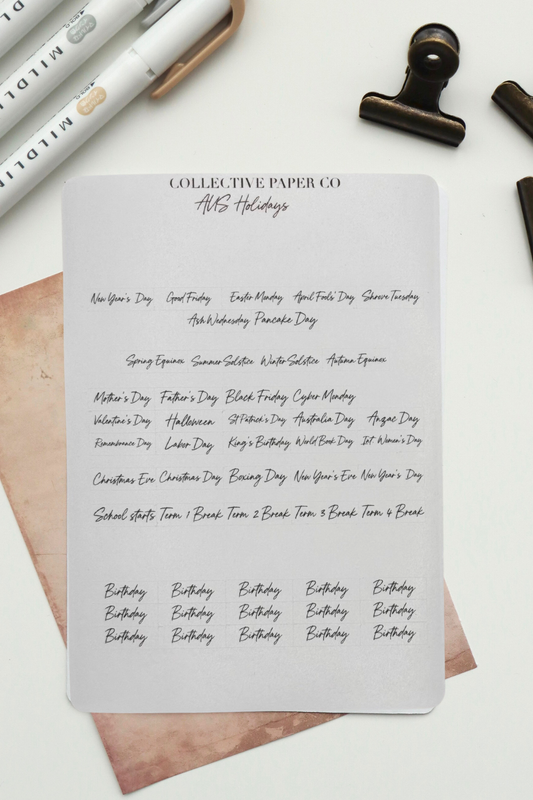 MILDLI
MILDLIN
COLLECTIVE PAPER CO
AUS Holidays
New Year's Day Good Friday Easter Monday April Fools' Day Shrove Tuesday
Ash Wednesday Pancake Day
Spring Equinox Summer Solstice Winter Solstice Autumn Equinox
Mother's Day Father's Day Black Friday Cyber Monday
Valentine's Day Halloween St Patrick's Day Australia Day Anzac Day
Remembrance Day Labor Day King's Birthday World Book Day Int. Women's Day
Christmas Eve Christmas Day Boxing Day New Year's Eve New Year's Day
School starts Term 1 Break Term 2 Break Term 3 Break Term 4 Break
Birthday Birthday Birthday Birthday Birthday
Birthday Birthday Birthday Birthday Birthday
Birthday Birthday Birthday Birthday Birthday